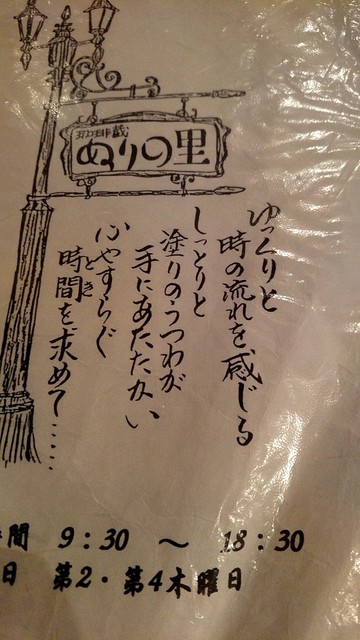 珈琲蔵
ぬりの里
ゆっくりと
時の流れを感じる
しっとりと
塗りのうつわが
手にあたたかい
心やすらぐ
時間を求めて……
とき
間 9:30 ～ 18:30
日 第2・第4木曜日